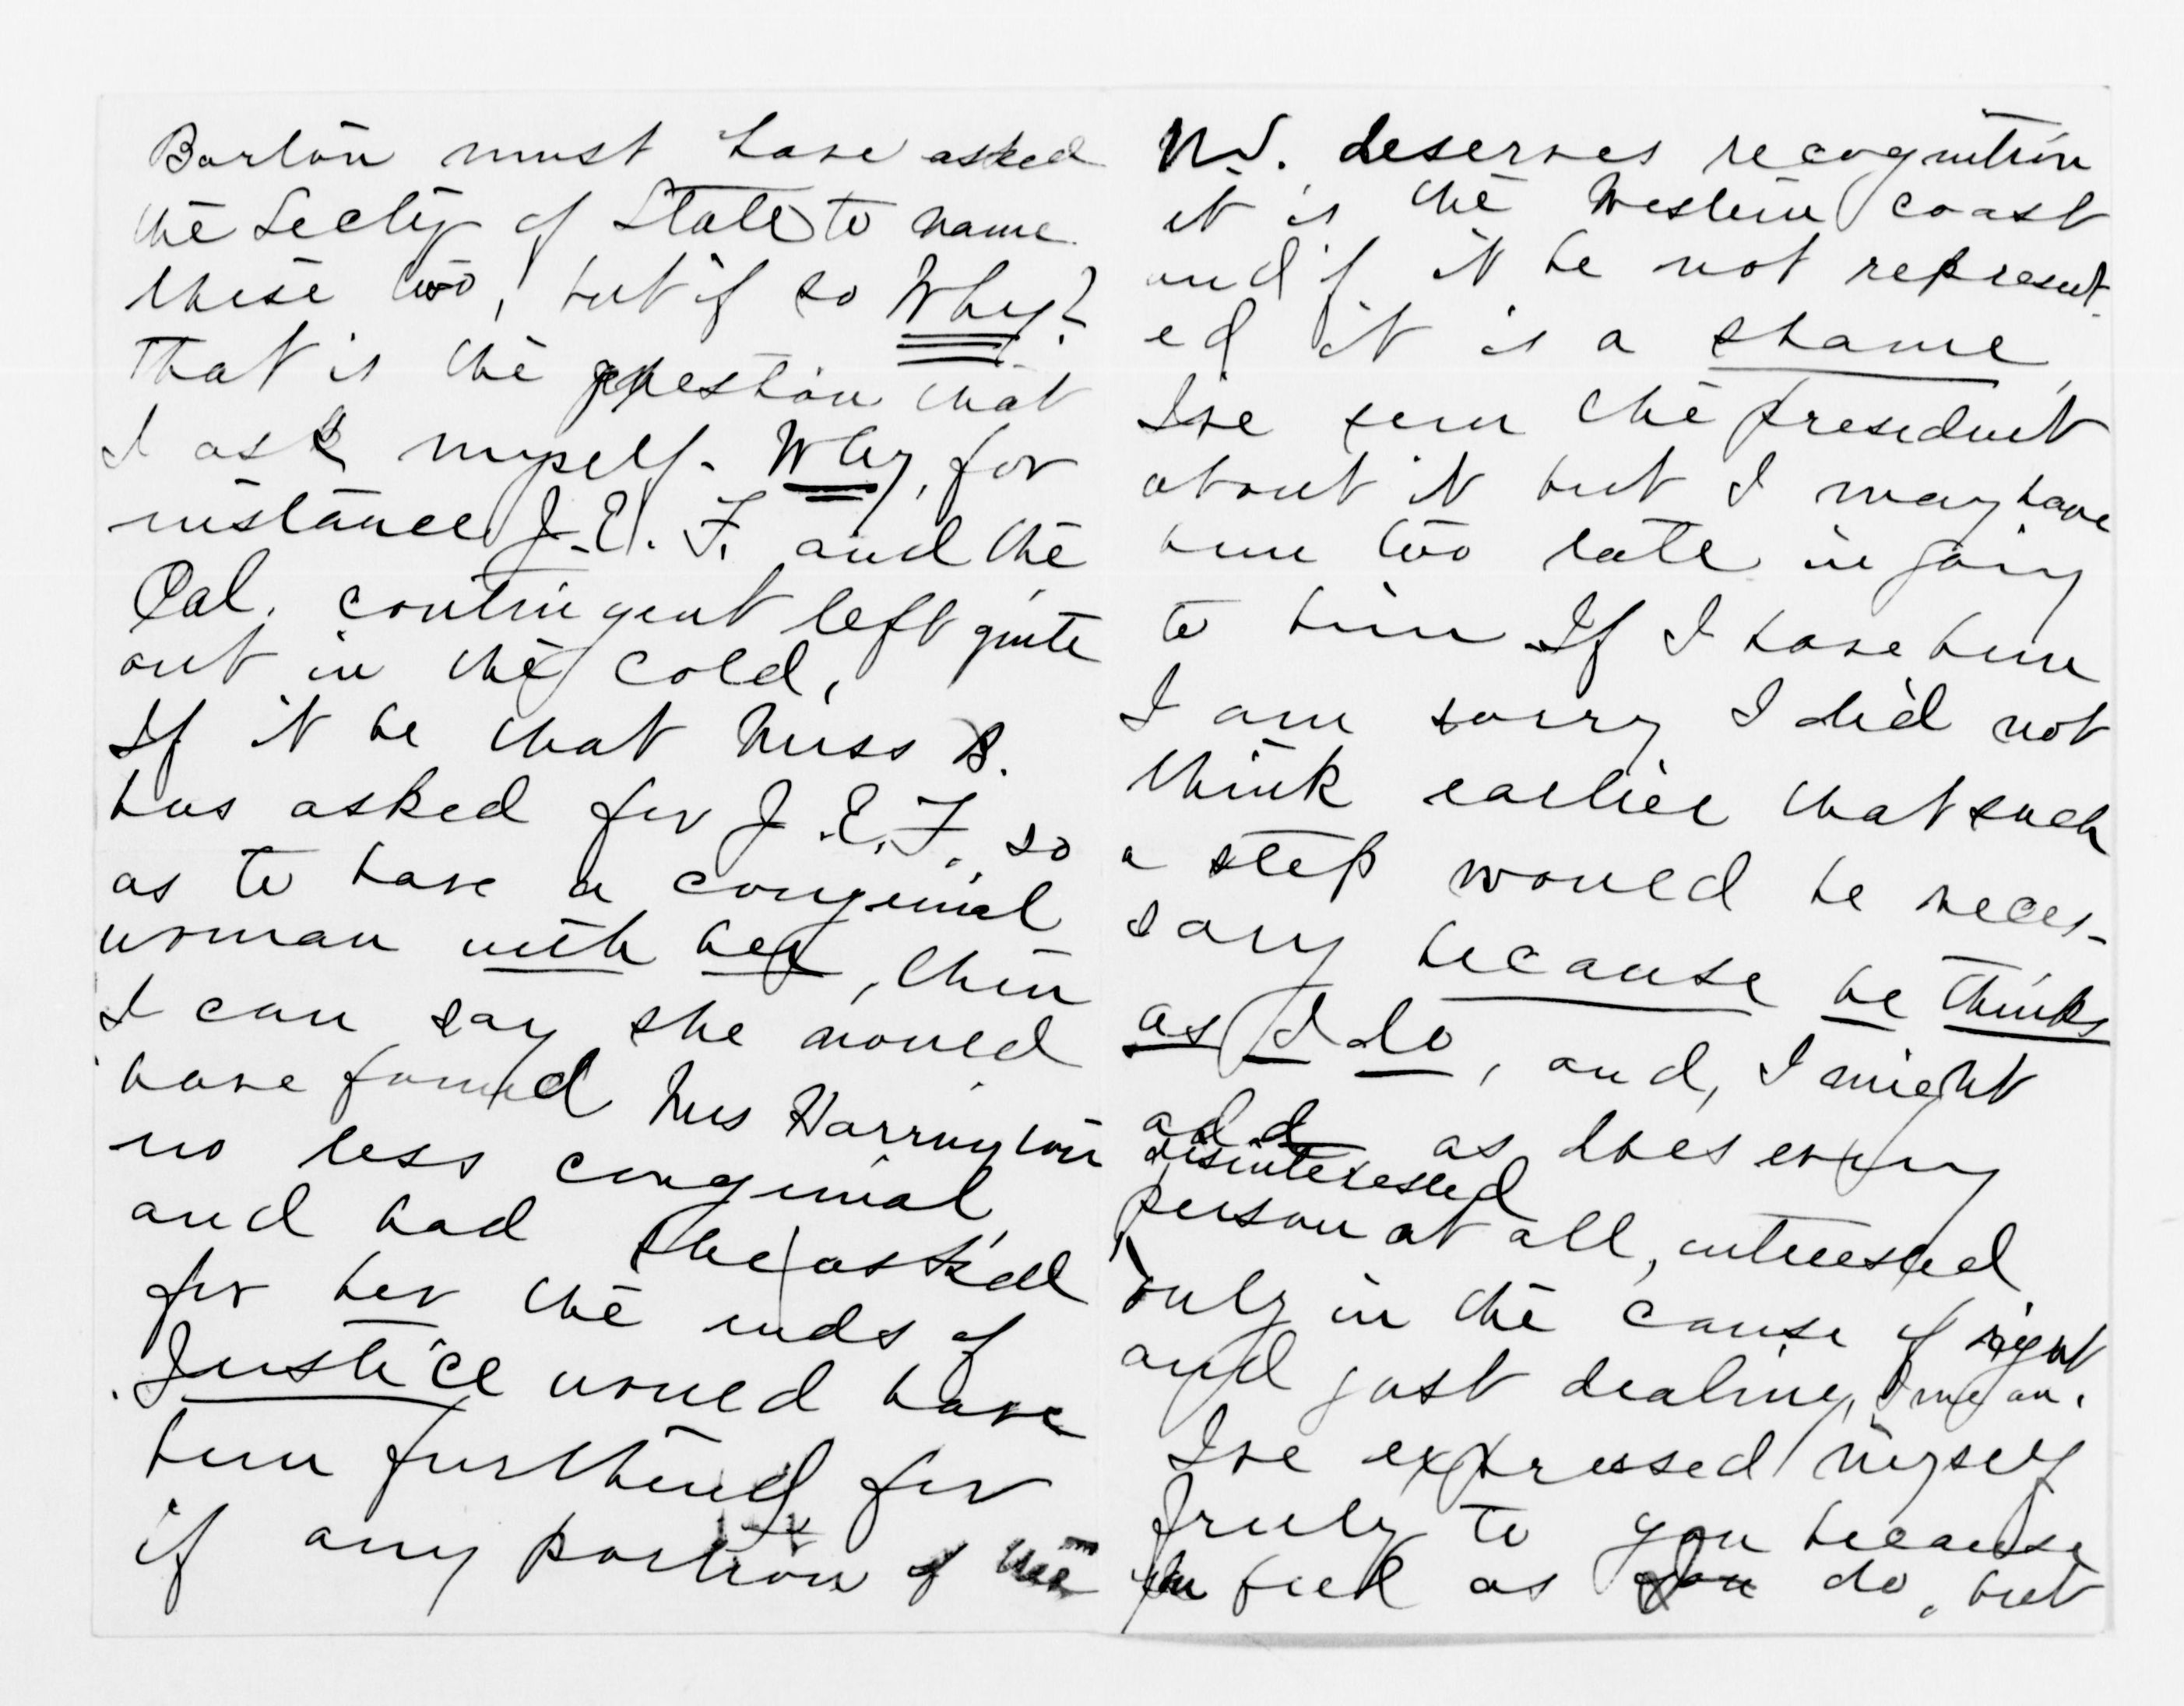 Barton must have asked
the Secty of State to name
these two, but if so Why?
That is the question that
I ask myself. Why, for
instance J. E. F. and the
Cal. contingent left quite
out in the cold,
If it be that Miss B.
has asked for J. E. F. so
as to have a congenial
woman with her, then
I can say she would
have found Mrs Harrington
no less congenial,
and had she asked
for her the ends of
Justice would have
been furthered for
if any portion of the
U.S. deserves recognition
it is the Western coast
and if it be not represent-
ed it is a shame,
I've seen the president
about it but I may have
been too late in going
to him If I have been
I am sorry I did not
think earlier that such
a step would be neces-
sary because he thinks
as I do, and, I might
add as does every
disinterested
person at all, interested
only in the cause of right
and just dealing, I mean.
I've expressed myself
freely to you because
you feel as I do, but